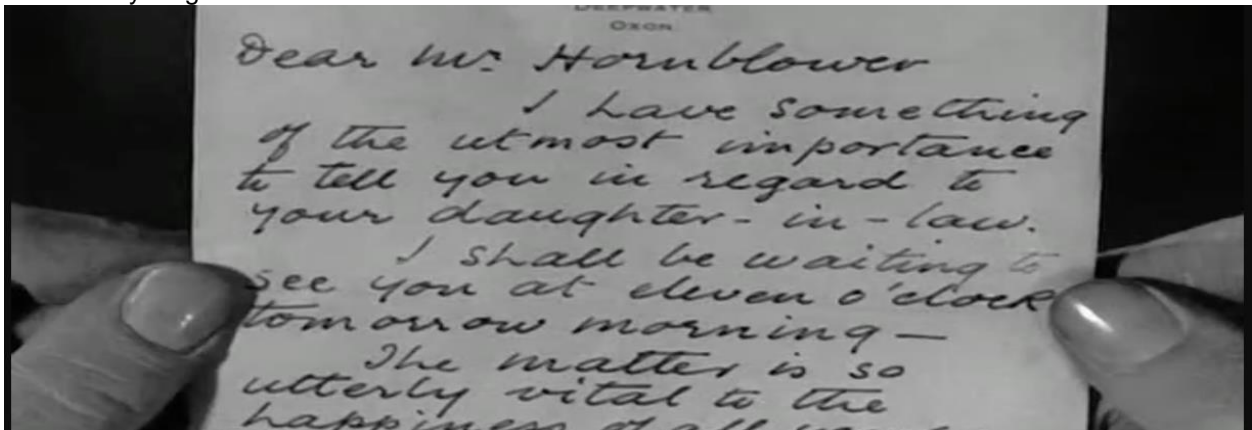 DEEPWATER
OXON.
Dear Mr. Hornblower
I have something
of the utmost importance
to tell you in regard to
your daughter-in-law.
I shall be waiting to
see you at eleven o'clock
tomorrow morning—
The matter is so
utterly vital to the
happiness of all